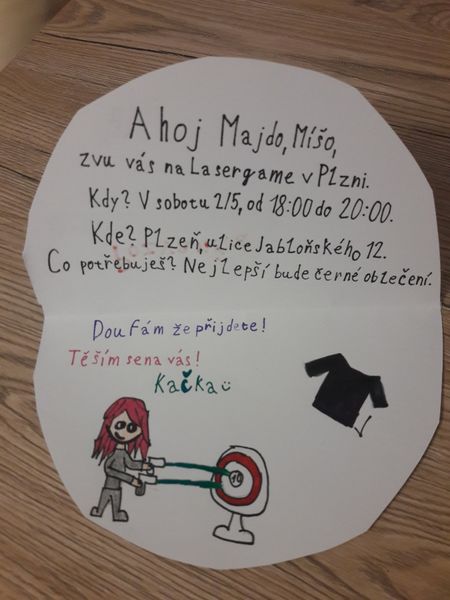 Ahoj Majdo, Míšo,
zvu vás na Lasergame v Plzni.
Kdy? V sobotu 2/5, od 18:00 do 20:00.
Kde? Plzeň, ulice Jabloňského 12.
Co potřebuješ? Nejlepší bude černé oblečení.
Doufám že přijdete!
Těším se na vás!
Kačka
10